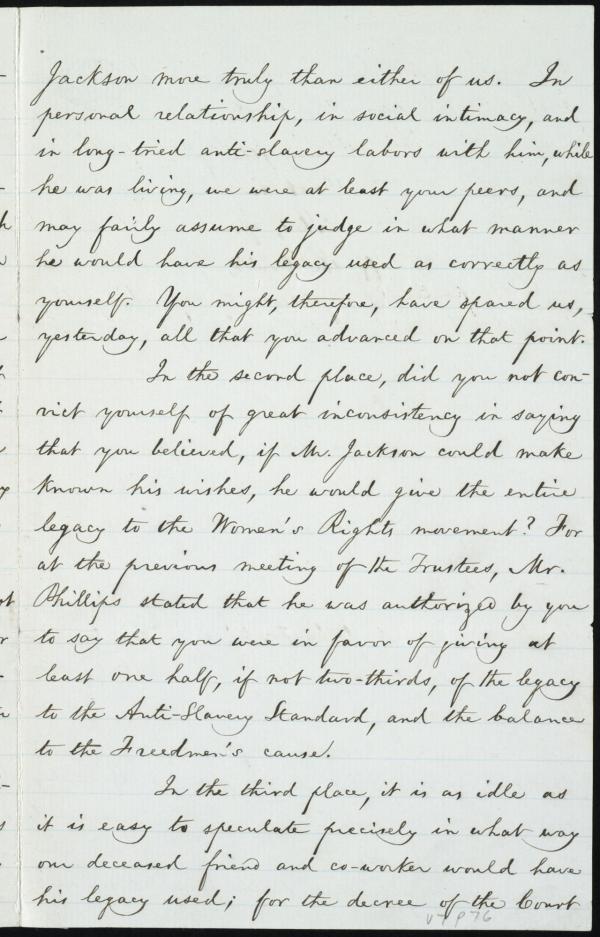 Jackson more truly than either of us. In
personal relationship, in social intimacy, and
in long-tried anti-slavery labors with him, while
he was living, we were at least your peers, and
may fairly assume to judge in what manner
he would have his legacy used as correctly as
yourself. You might, therefore, have spared us,
yesterday, all that you advanced on that point.
In the second place, did you not con-
vict yourself of great inconsistency in saying
that you believed, if Mr. Jackson could make
known his wishes, he would give the entire
legacy to the Women's Rights movement? For
at the previous meeting of the Trustees, Mr.
Phillips stated that he was authorized by you
to say that you were in favor of giving at
least one half, if not two-thirds, of the legacy
to the Anti-Slavery Standard, and the balance
to the Freedmen's cause.
In the third place, it is as idle as
it is easy to speculate precisely in what way
our deceased friend and co-worker would have
his legacy used; for the decree of the Court